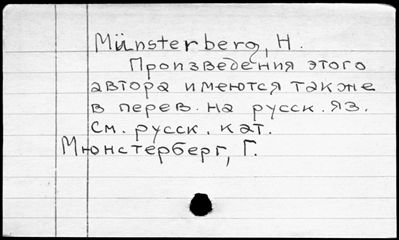 Münsterberg, H.
Произведения этого
автора имеются также
в перев. на русск. яз.
См. русск. кат.
Мюнстерберг, Г.